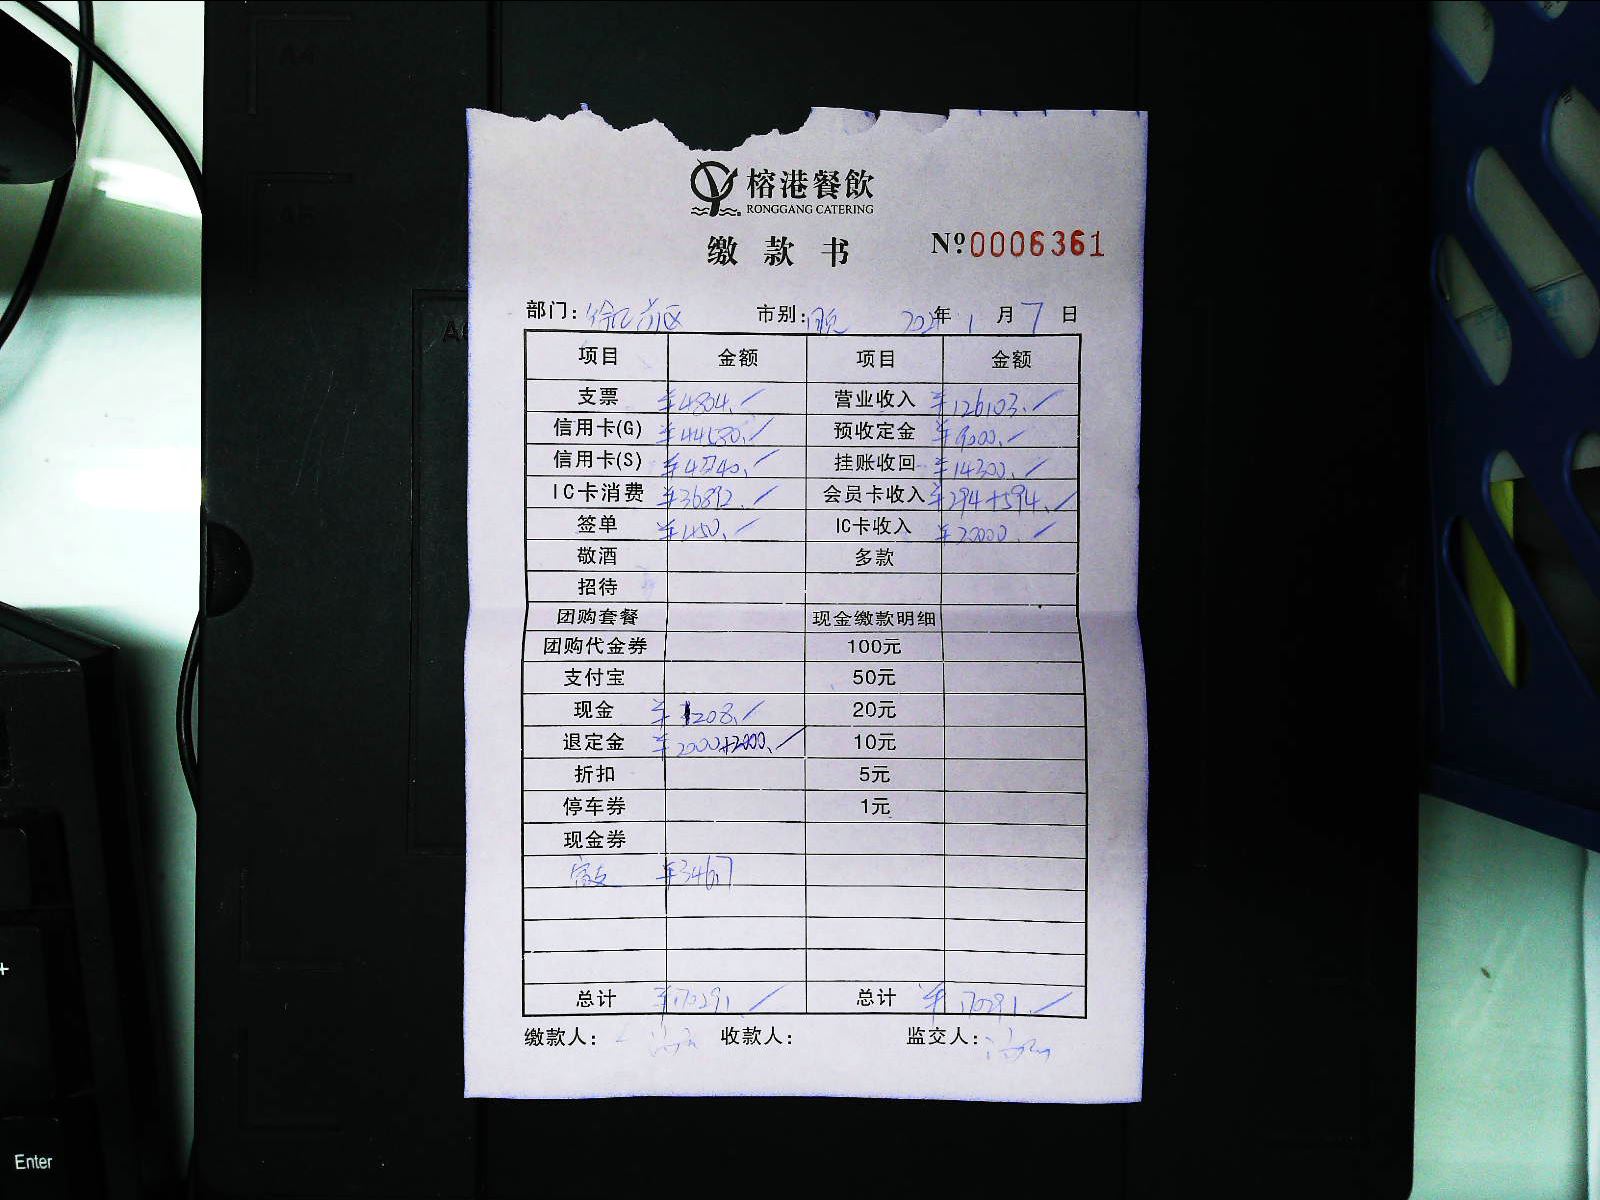 A4
A5
榕港餐飲
RONGGANG CATERING
缴款书 Nº0006361
部门: 市别: 年 1 月 7 日
项目 金额 项目 金额
支票 ¥4804. 营业收入 ¥126103.
信用卡(G) 预收定金 ¥9000.
信用卡(S) 挂账收回 ¥14300.
IC卡消费 ¥36892. 会员卡收入 ¥294+594.
签单 ¥450. IC卡收入 ¥20000.
敬酒 多款
招待
团购套餐 现金缴款明细
团购代金券 100元
支付宝 50元
现金 ¥1208. 20元
退定金 ¥2000+2000. 10元
折扣 5元
停车券 1元
现金券
总计 ¥170291. 总计 ¥170291.
缴款人: 收款人: 监交人:
+
Enter